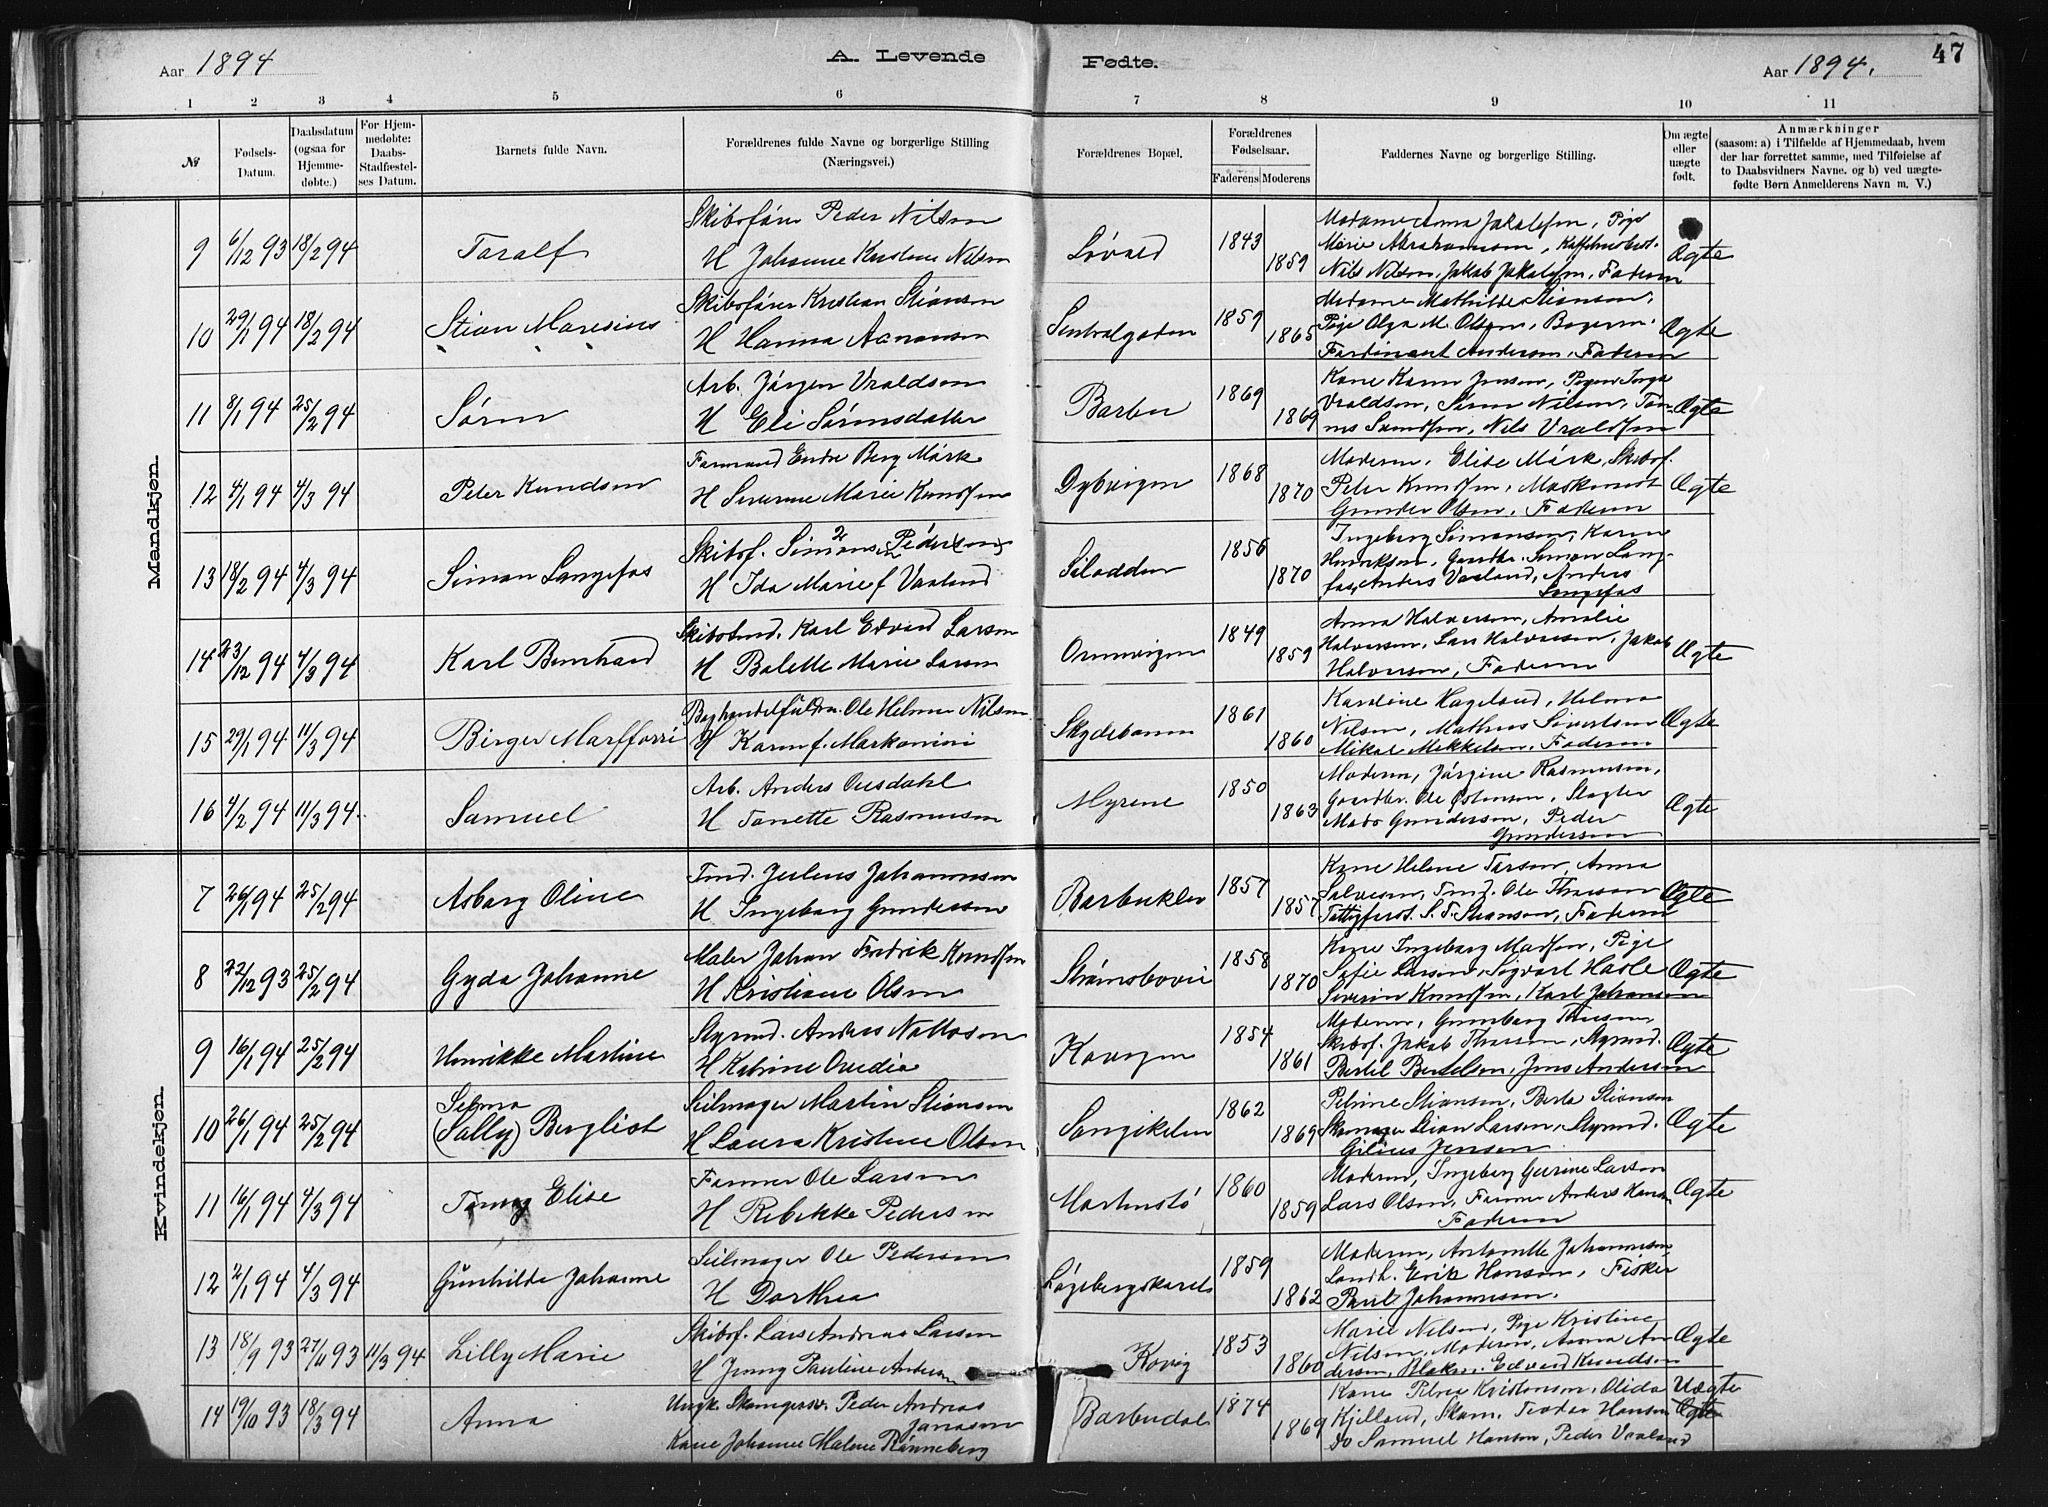 Aar 1894
A. Levende
Fødte.
Aar 1894.
47
1 2 3 4 5 6 7 8 9 10 11
№
Fødsels-Datum.
Daabsdatum (ogsaa for Hjemme-døbte.)
For Hjem-medøbte: Daabs-Stadfæstel-ses Datum.
Barnets fulde Navn.
Forældrenes fulde Navne og borgerlige Stilling
(Næringsvei.)
Forældrenes Bopæl.
Forældrenes Fødselsaar.
Faderens Moderens
Faddernes Navne og borgerlige Stilling.
Om ægte eller uægte født.
Anmærkninger
(saasom: a) i Tilfælde af Hjemmedaab, hvem
der har forrettet samme, med Tilføielse af
to Daabsvidners Navne. og b) ved uægte-
fødte Børn Anmelderens Navn m. V.)
Mandkjøn.
9 6/12 93 18/2 94 Taralf
Skibsfører Peder Nilsen
H Johanne Kristine Nilsen
Løvold 1843 1859
Madame Anna Jakobsen, Pige
Marie Abrahamsen,
Nils Nilsen, Jakob Jakobsen, Faderen
Ægte
10 29/1 94 18/2 94 Stian Maresius
Skibsfører Kristian Stiansen
H Hanna Aanonsen
Sentralgaden 1859 1865
Madame Mathilde Stiansen,
Pige Olga M. Olsen,
Ferdinant Andersen, Faderen
Ægte
11 8/1 94 25/2 94 Søren
Arb. Jørgen Vraldsen
H Eli Sørensdatter
Barbu 1869 1869
Kone Karen Jensen, Pigen Inga
Vraldsen, Søren Nilsen,
Nils Vraldsen
Ægte
12 4/1 94 4/3 94 Peter Knudsen
Formand Endre Berg Mørk
H Severine Marie Knudsen
Dybvigen 1868 1870
Moderen, Elise Mørk, Skibsf.
Peter Knudsen, Maskinist
Gunder Olsen, Faderen
Ægte
13 18/2 94 4/3 94 Simon Langefos
Skibsf. Simonsen Pedersen
H Ida Marie f Vaaland
Silodden 1856 1870
Ingeborg Simonsen, Karen
Henriksen, Gaardbr. Simon Lang-
fos, Anders Vaaland, Anders
Langefos
14 23/12 94 4/3 94 Karl Bernhard
Skibstmd. Karl Edvard Larsen
H Bolette Marie Larsen
Ormvigen 1849 1859
Anna Halvorsen, Amalie
Halvorsen, Lars Halvorsen, Jakob
Halvorsen, Faderen
Ægte
15 29/1 94 11/3 94 Birger
Ole Helmer Nilsen
H Karen f.
Skydebanen 1861 1860
Karoline Hageland, Helma
Nilsen, Mathias Sivertsen
Mikal Mikkelsen, Faderen
Ægte
16 4/2 94 11/3 94. Samuel
Arb. Anders Ousdahl
H Tonette Rasmussen
Myrene 1850 1863
Moderen, Jørgine Rasmussen,
Gaardbr. Ole Østensen, Slagter
Mads Gundersen, Peder
Gundersen
Ægte
Kvindekjøn.
7 26/1 94 25/2 94 Asborg Oline
Tmd. Julius Johannesen
H Ingeborg Gundersen
Barbuklev 1857 1857
Kone Helene Tarsen, Anna
Salvesen, Tmd. Ole Thorsen
Faderen
Ægte
8 22/12 93 25/2 94 Gyda Johanne
Maler Johan Fredrik Knudsen
H Kristiane Olsen
Strømsbovei 1858 1870
Kone Ingeborg Madsen, Pige
Sofie Larsen, Sigvart Hasle
Severin Knudsen, Karl Johansen
Ægte
9 16/1 94 25/2 94 Henrikke Martine
Styrmd. Anders Nattosen
H Katrine Ovedie
Kovigen 1854 1861
Moderen, Gunborg Thorsen
Skibsf. Jakob Thorsen, Styrmd.
Bertel Bertelsen, Jens Andersen
Ægte
10 26/1 94 25/2 94 Selma
(Sally) Bergliot
Seilmager Martin Stiansen
H Laura Kristine Olsen
Sangikelen 1862 1869
Petrine Stiansen, Berta Stiansen
Skomager Stian Larsen, Styrmd.
Gilius Jensen
Ægte
11 16/1 94 4/3 94 Tomy Elise
Farmer Ole Larsen
H Rebekke Pedersen
1860 1859
Moderen, Ingeborg Gurine Larsen
Lars Olsen, Farmer Anders Hansen
Faderen
Ægte
12 2/1 94 4/3 94 Gunhilde Johanne
Seilmager Ole Pedersen
H Dorthea
Løgebergskaret 1859 1862
Moderen, Antonette Johannesen
Landh. Erik Hansen, Fisker
Poul Johannesen.
13 18/9 93 27/11 93 11/3 94 Lilly Marie
Skibsf. Lars Andreas Larsen
H Jenny Pauline Andersen
Kovig 1853 1860
Marie Nilsen, Pige Kristine
Nilsen, Moderen, Anna An
dersen, Edvard Knudsen
Ægte
14 19/10 93 18/3 94 Anna
Ungk. Skomagersv. Peder Andreas
Jonassen
Kone Johanne Malene Rønneberg
Barbudal 1874 1869
Kone Petrea Kristensen, Olida
Kjelland, Skom. Teodor Hansen
Do Samuel Hansen, Peder Vaaland
Uægte
Ægte